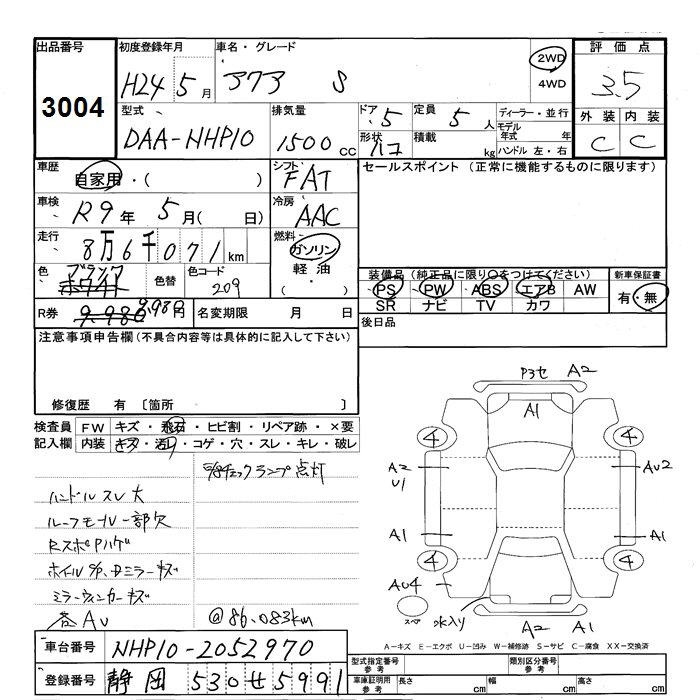 出品番号
3004
初度登録年月
H24年 5月
車名・グレード
アクア S
2WD
4WD
評価点
3.5
外装 内装
C C
型式
DAA-NHP10
排気量
1500cc
ドア・5
形状 ハコ
定員 5人
積載 kg
ディーラー・並行
モデル年式 年
ハンドル 左・右
車歴
自家用・( )
シフト
FAT
車検
R9年 5月( 日)
冷房
AAC
走行
8万6千071km
燃料
ガソリン
軽油
( )
色
ブラック
ホワイト
色替
色コード
209
R券 9,980 9,980円
名変期限 月 日
セールスポイント (正常に機能するものに限ります)
装備品(純正品に限り○をつけてください)
PS PW ABS エアB AW
SR ナビ TV カワ
新車保証書
有・無
後日品
注意事項申告欄(不具合内容等は具体的に記入して下さい)
修復歴 有 〔箇所 〕
検査員記入欄
FW キズ・飛石・ヒビ割・リペア跡・×要
内装 キズ・汚レ・コゲ・穴・スレ・キレ・破レ
チェックランプ点灯
ハンドルスレ大
ルーフモール一部欠
RスポPハゲ
ホイルS/P、Dミラーキズ
ミラーウィンカーキズ
各AU
@86.083km
P3セ A2
A1
4 4
A2
U1
AU2
A1 A1
4 4
AU4
スペア
水入り
A2 A1
A-キズ E-エクボ U-凹み W-補修跡 S-サビ C-腐食 XX-交換済
車台番号 NHP10-2052970
登録番号 静岡 530せ5991
型式指定番号
参考
類別区分番号
参考
車庫証明用
参考
長さ cm 幅 cm 高さ cm